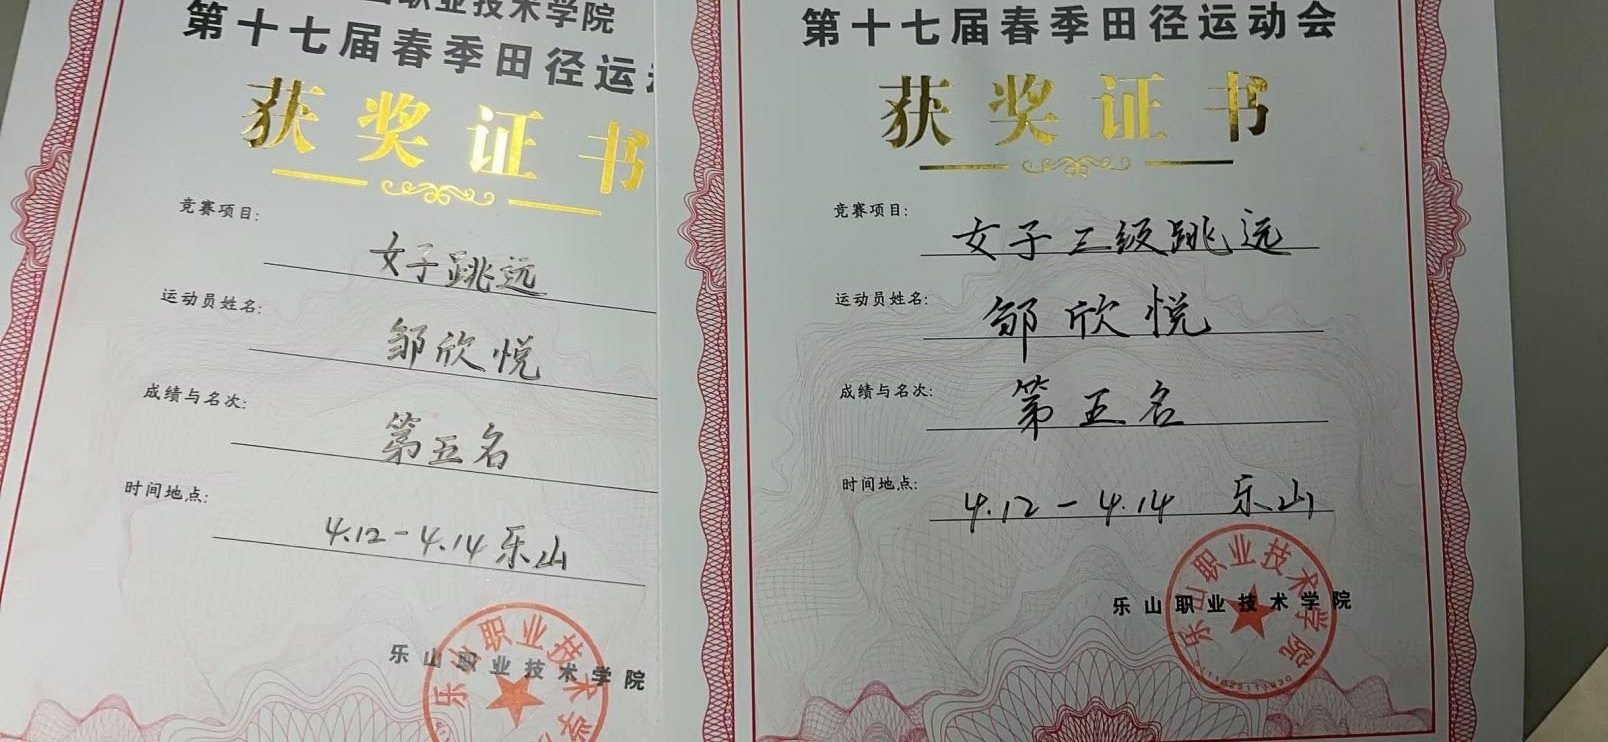 山职业技术学院
第十七届春季田径运
获奖证书
竞赛项目:
女子跳远
运动员姓名:
邹欣悦
成绩与名次:
第五名
时间地点:
4.12-4.14 乐山
乐山职业技术学院
乐山职业技术学
第十七届春季田径运动会
获奖证书
竞赛项目:
女子三级跳远
运动员姓名:
邹欣悦
成绩与名次:
第五名
时间地点:
4.12-4.14 乐山
乐山职业技术学院
乐山职业技术学院